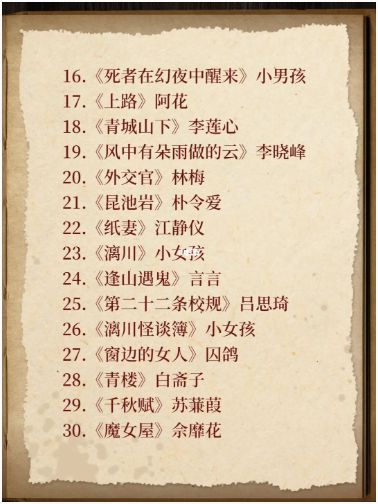 16.《死者在幻夜中醒来》小男孩
17.《上路》阿花
18.《青城山下》李莲心
19.《风中有朵雨做的云》李晓峰
20.《外交官》林梅
21.《昆池岩》朴令爱
22.《纸妻》江静仪
23.《漓川》小女孩
24.《逢山遇鬼》言言
25.《第二十二条校规》吕思琦
26.《漓川怪谈簿》小女孩
27.《窗边的女人》囚鸽
28.《青楼》白斋子
29.《千秋赋》苏蒹葭
30.《魔女屋》佘靡花